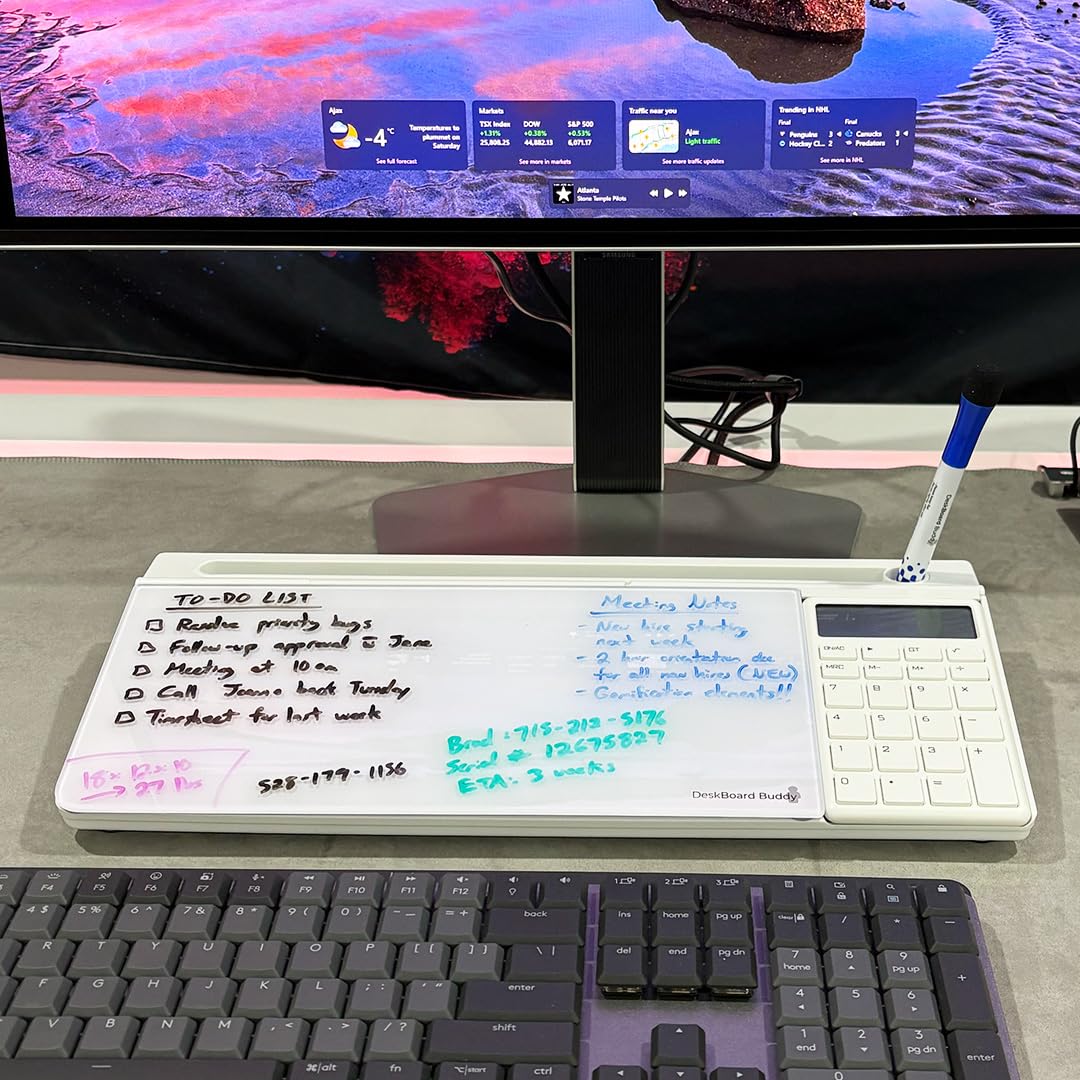 Ajax
-4°C
Temperatures to
plummet on
Saturday
See full forecast
Markets
TSX Index DOW S&P 500
+1.31% +0.38% +0.53%
25,808.25 44,882.13 6,071.17
See more in markets
Traffic near you
Ajax
Light traffic
See more traffic updates
Trending in NHL
Final Final
Penguins 3 Canucks 3
Hockey Cl... 2 Predators 1
See more in NHL
Atlanta
Stone Temple Pilots
SAMSUNG
DeskBoard Buddy
TO-DO LIST
Resolve priority bugs
Follow-up approval c̄ Jane
Meeting at 10am
Call Joanne back Tuesday
Timesheet for last week
Meeting Notes
- New hire starting
next week
- 2 hour orientation due
for all new hires (NEW)
- Gamification elements!!
18 x 12 x 10
→ 27 lbs
528-179-1156
Brad: 715-212-5176
Serial # 12675827
ETA: 3 weeks
DeskBoard Buddy
ON/AC ▶ GT √
MRC M- M+ ÷
7 8 9 ×
4 5 6 −
1 2 3 +
0 • =
F4 F5 F6 F7 F8 F9 F10 F11 F12 1 2 3
4 $ 5 % 6 ^ 7 & 8 * 9 ( 0 ) - _ = + back ins home pg up clear / * -
R T Y U I O P [ { ] } \ | del end pg dn 7 home 8 9 pg up +
F G H J K L ; : ' " enter 4 5 6
V B N M , < . > / ? shift 1 end 2 3 pg dn enter
⌘/alt fn ⌥/start ctrl 0